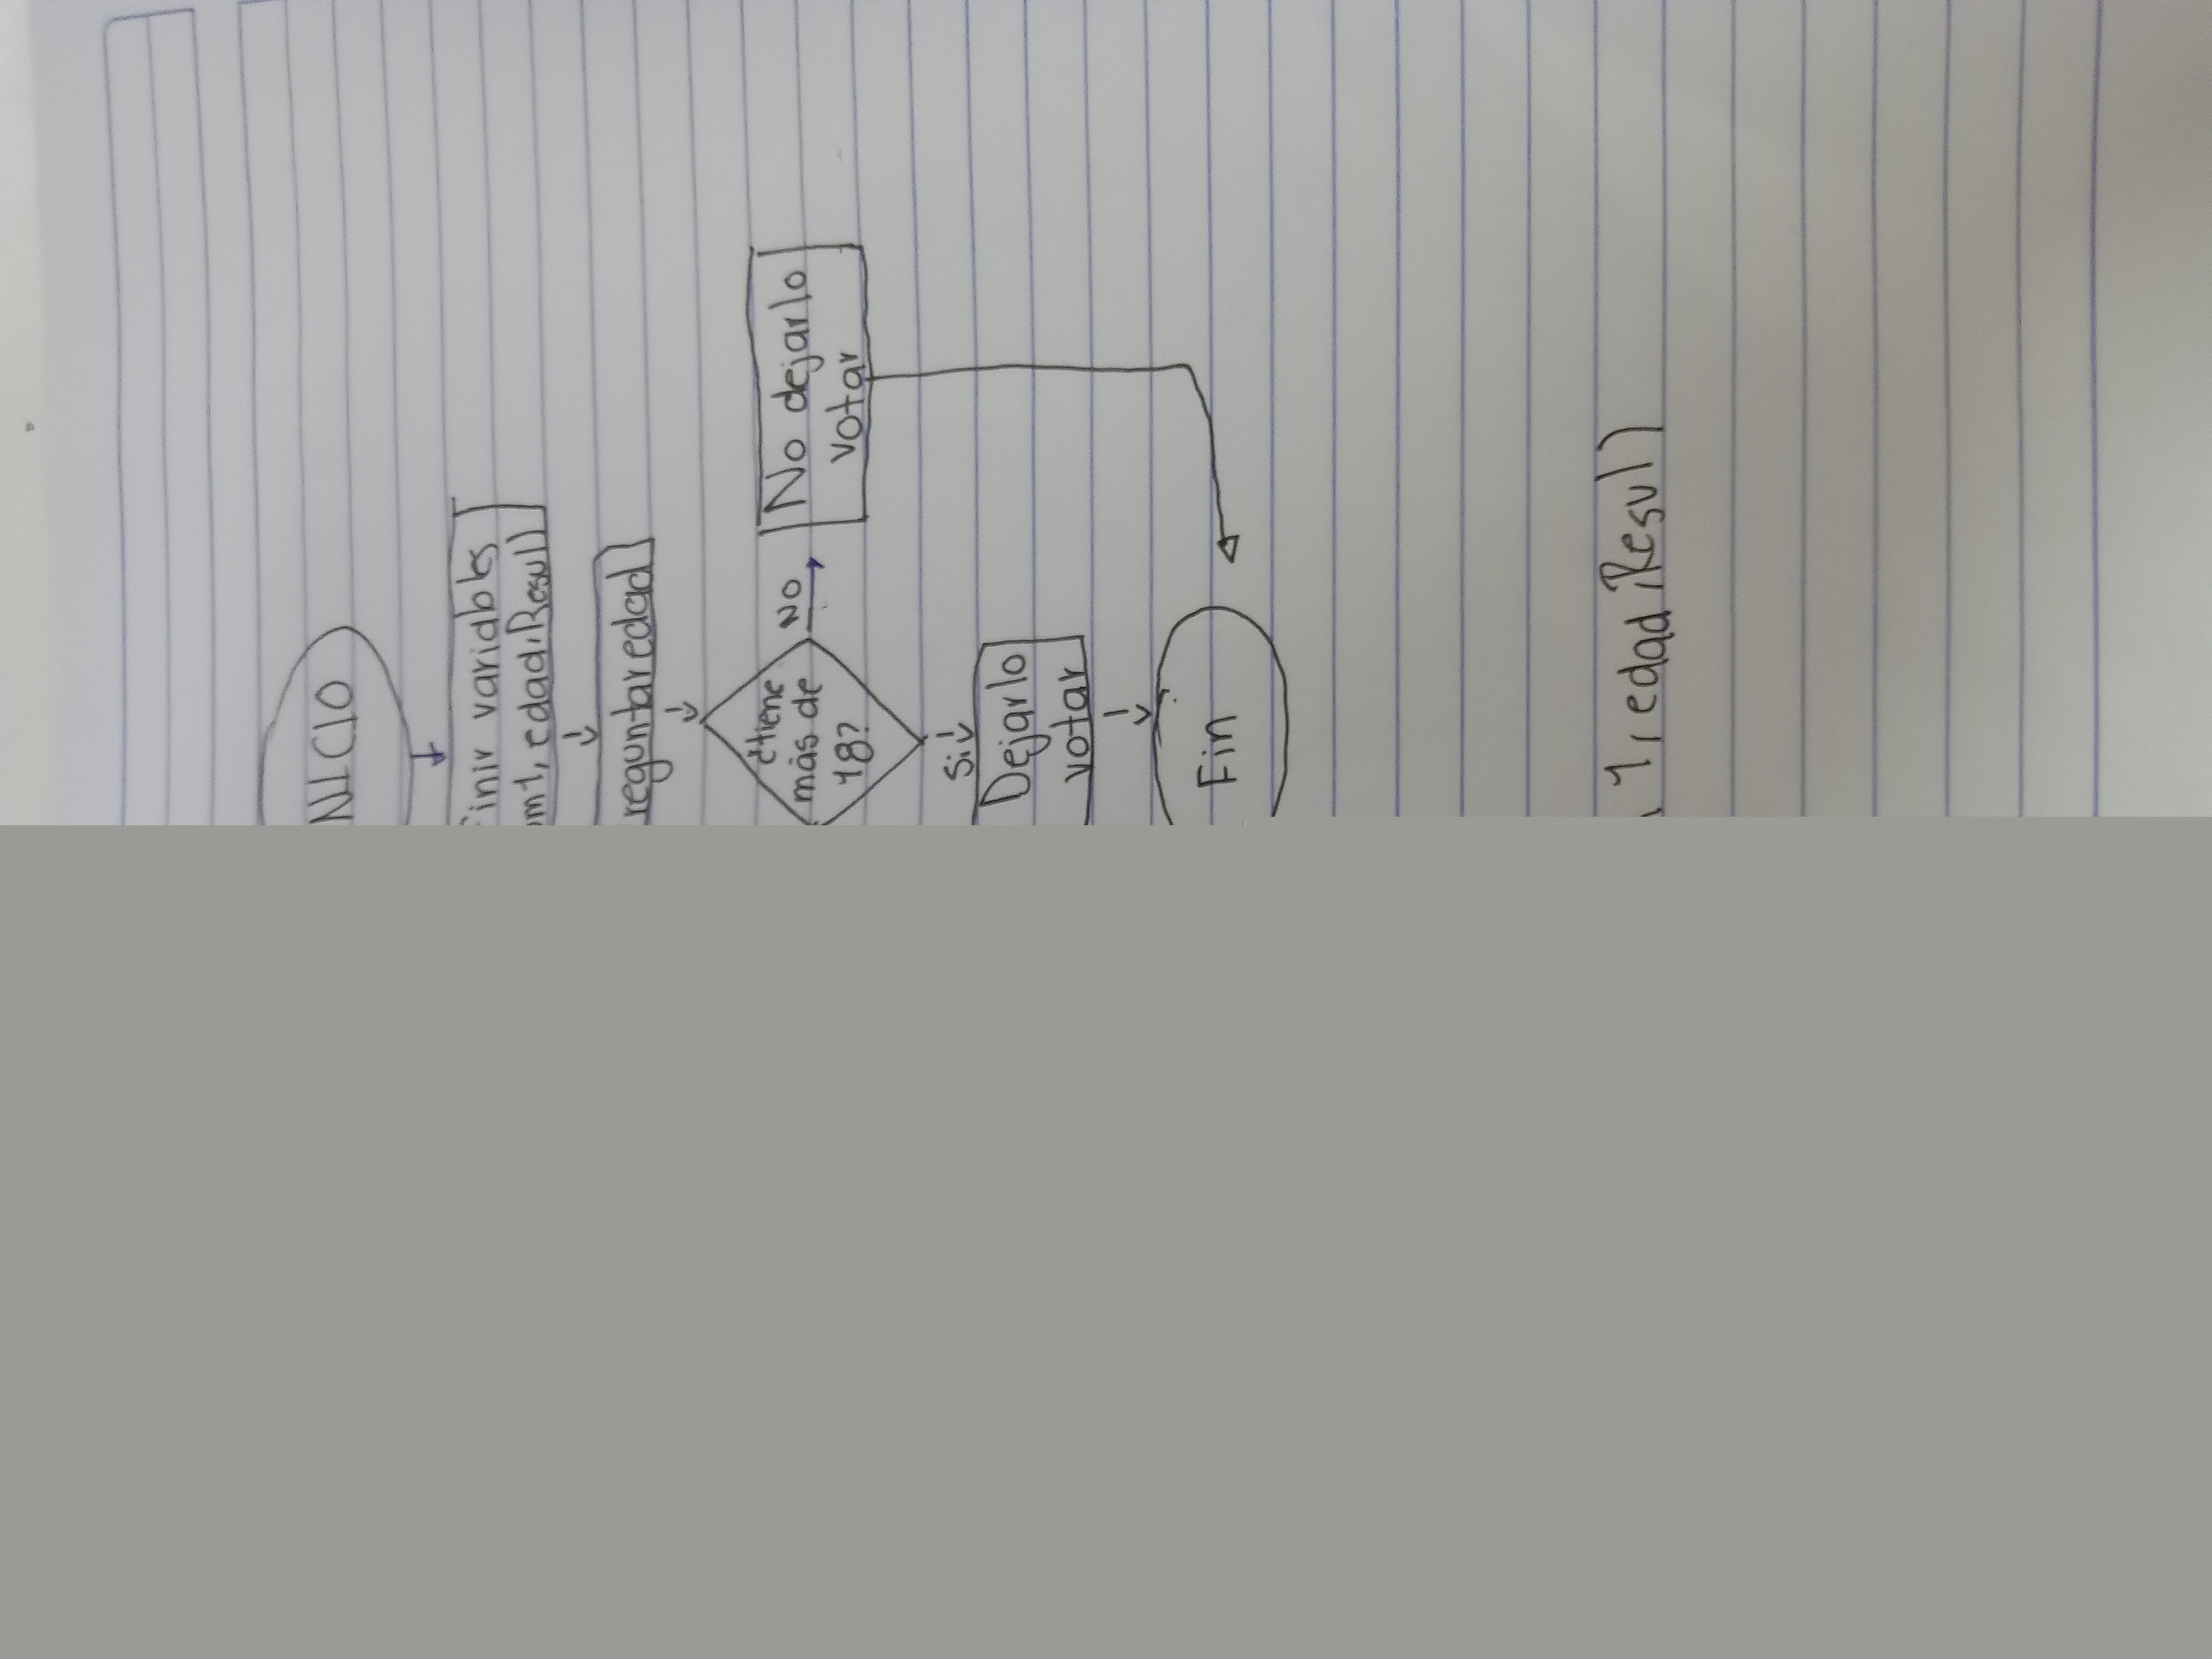 NICIO
finir variables
om1, edad, Resul)
reguntar edad
¿tiene
más de
18?
NO
No dejarlo
votar
Si
Dejarlo
votar
Fin
1, edad, Resul)